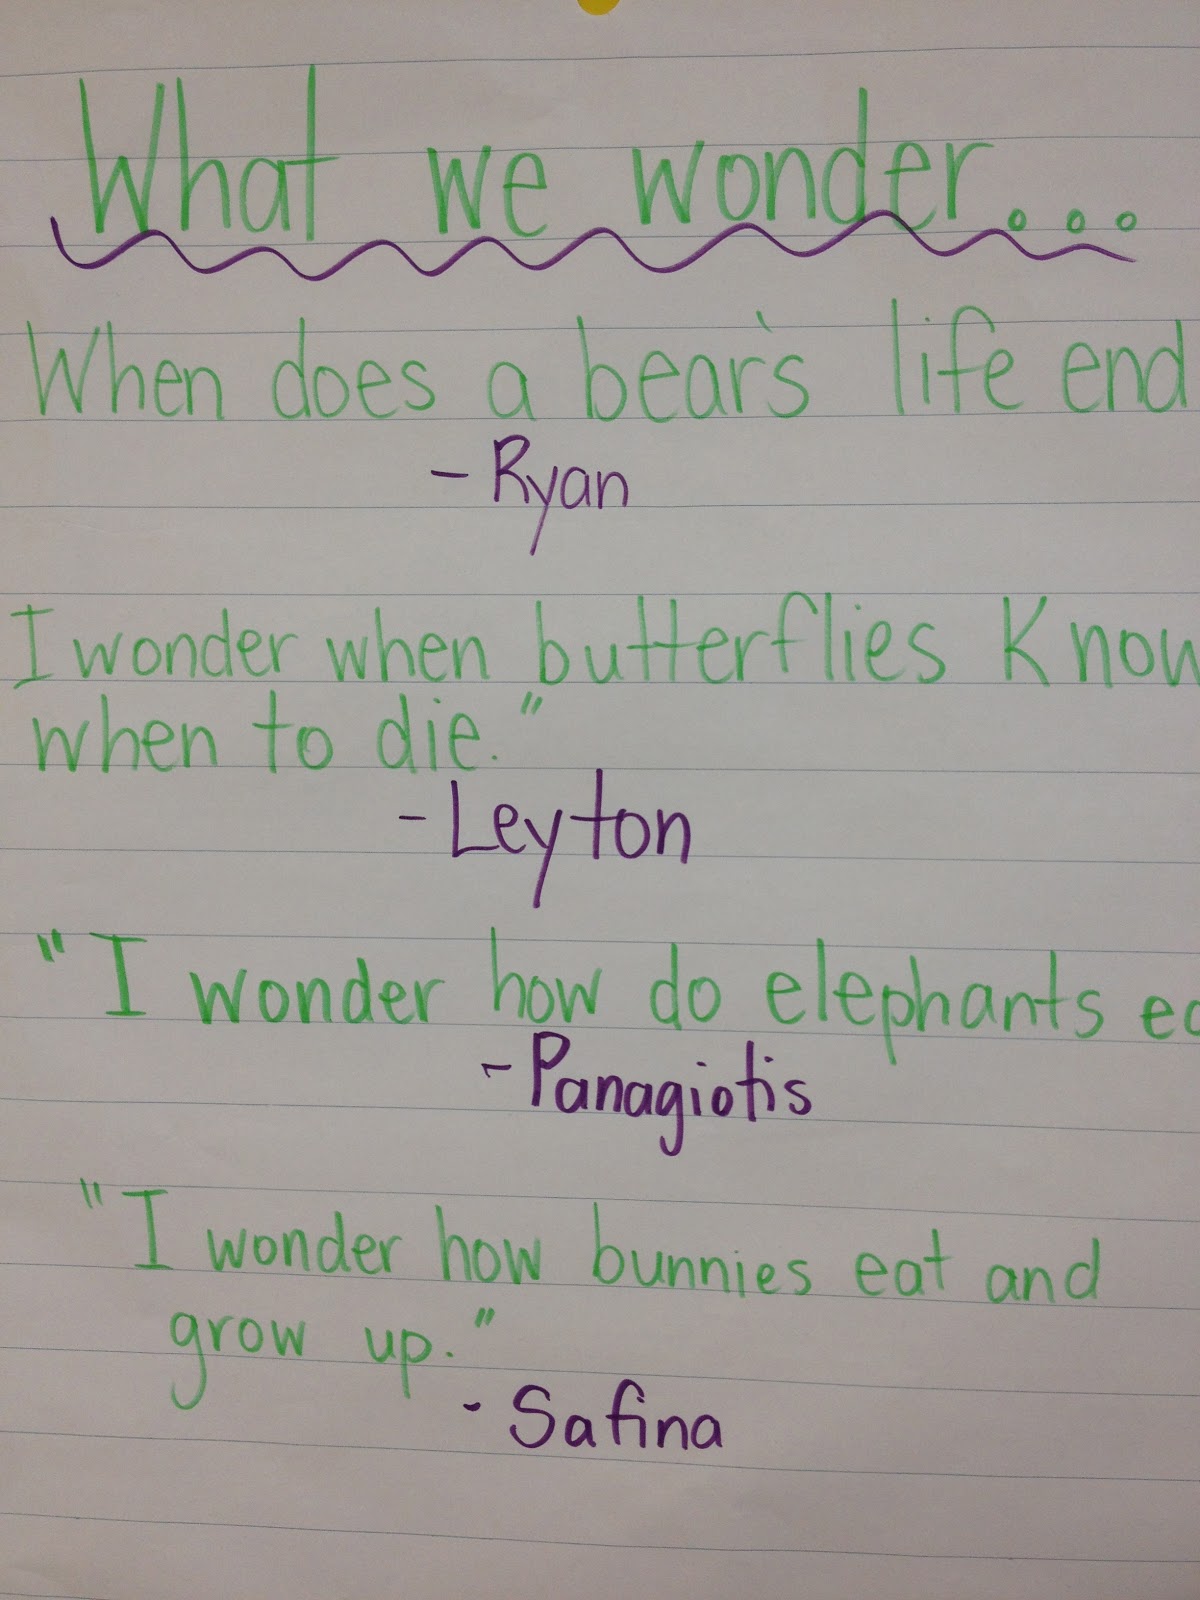 What we wonder...
When does a bear's life end
- Ryan
I wonder when butterflies know
when to die."
- Leyton
"I wonder how do elephants
- Panagiotis
"I wonder how bunnies eat and
grow up."
- Safina